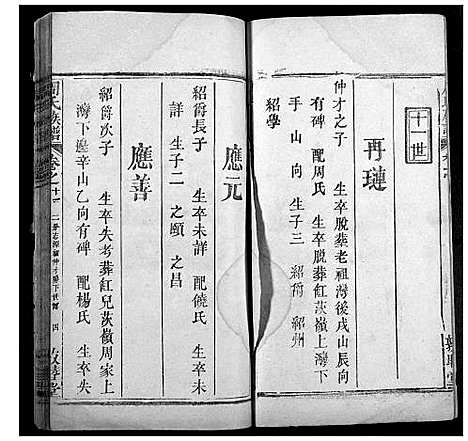 十一世
再璉
仲才之子 生卒脫葬老祖灣後戌山辰向
有碑 配周氏 生卒脫葬紅茨嶺上灣下
手山 向 生子三 紹爵 紹州
紹學
應元
紹爵長子 生卒未詳 配饒氏 生卒未
詳 生子二 之頤 之昌
應善
紹爵次子 生卒失考葬紅兒茨嶺周家上
灣下邊辛山乙向有碑 配楊氏 生卒失
氏族譜 卷之十一 四